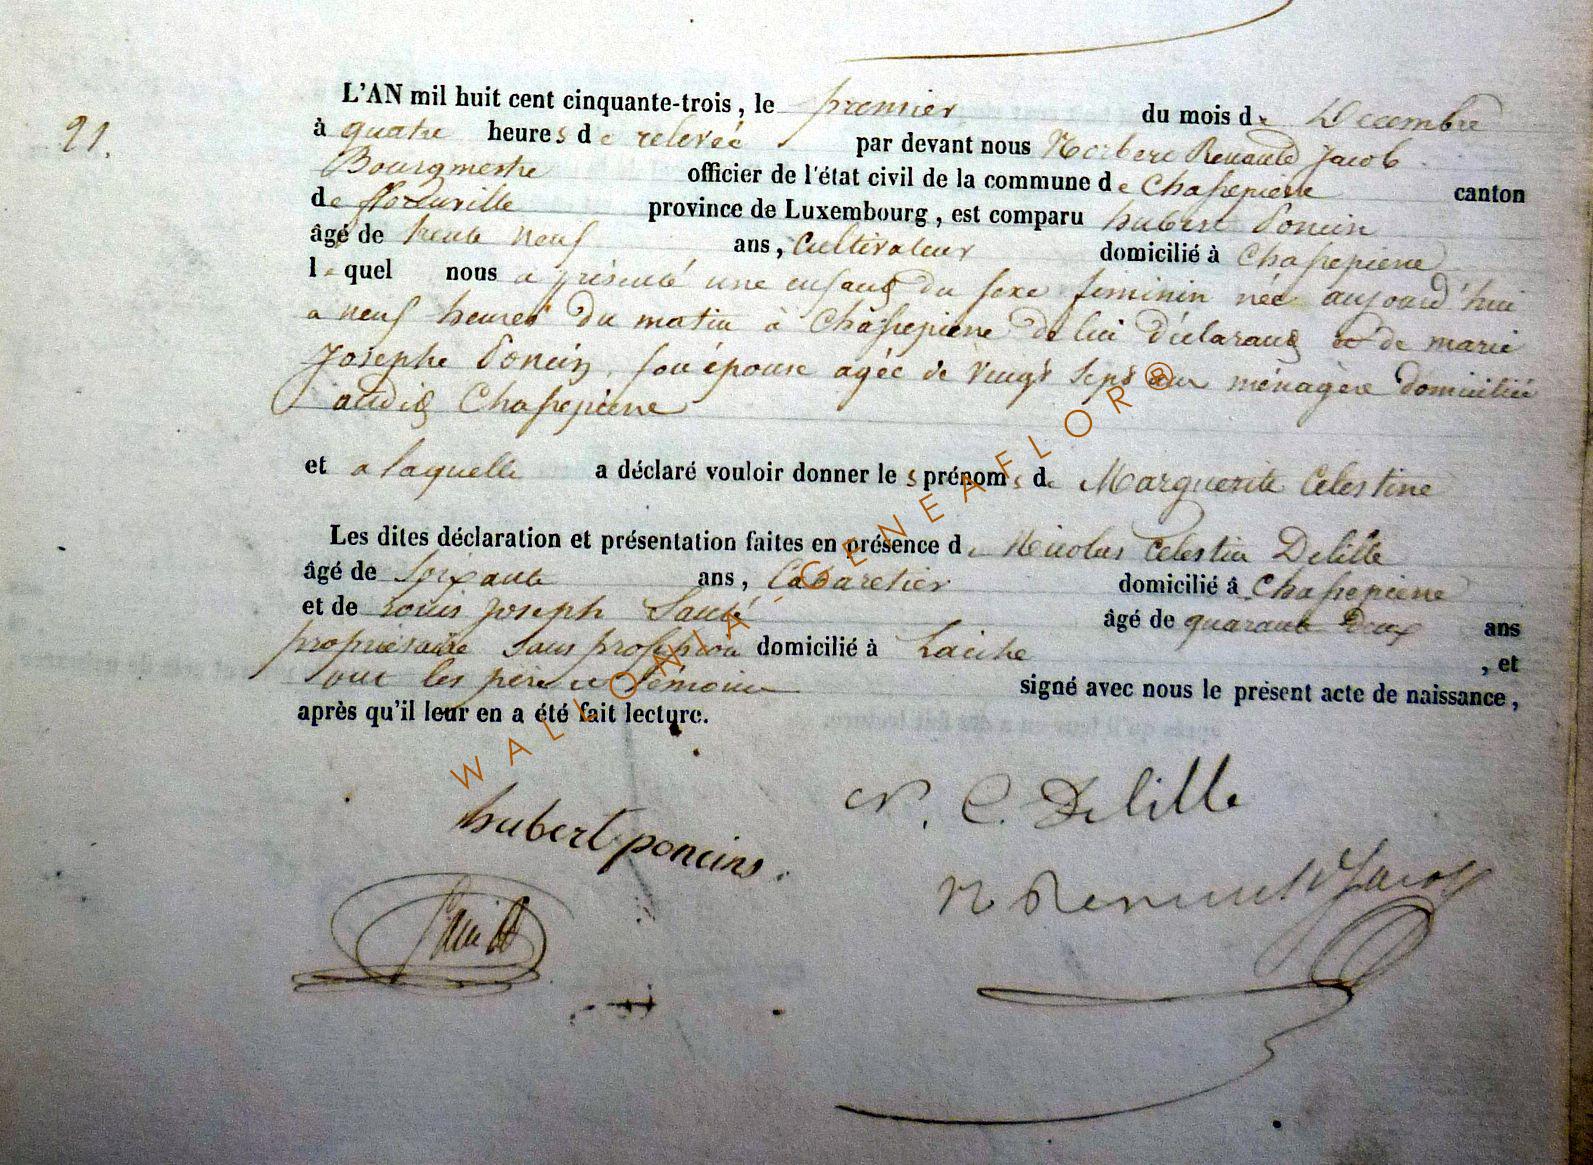 21.
L'AN mil huit cent cinquante-trois, le premier du mois de Decembre
à quatre heures de relevée par devant nous Norbert Renauld Jacob
Bourgmestre officier de l'état civil de la commune de Chassepierre canton
de florenville province de Luxembourg, est comparu hubert Poncin
âgé de trente neuf ans, Cultivateur domicilié à Chassepierre
lequel nous a présenté une enfant du sexe feminin née aujourd'hui
a neuf heures du matin à Chassepierre de lui déclarant et de marie
Josephe Poncin, son épouse agée de vingt sept ans ménagère domiciliée
audit Chassepierre
et a laquelle a déclaré vouloir donner les prénoms de Marguerite Celestine
Les dites déclaration et présentation faites en présence de Nicolas Celestin Delille
âgé de soixante ans, Cabaretier domicilié à Chassepierre
et de Louis Joseph âgé de quarante deux ans
propriétaire sans profession domicilié à Laiche, et
ont les père et témoins signé avec nous le présent acte de naissance,
après qu'il leur en a été fait lecture.
WALLONIA - GENEAFLOR®
hubert poncins.
N. C. Delille
N Renauld Jacob